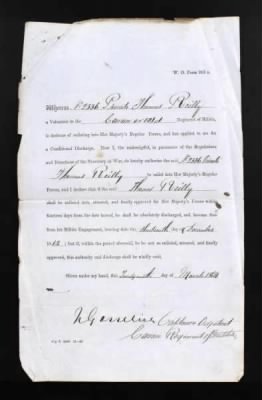 W. O. Form 915 a.
Whereas No 2536 Private Thomas Reilly
a Volunteer in the Cavan or 101st Regiment of Militia,
is desirous of enlisting into Her Majesty's Regular Forces, and has applied to me for
a Conditional Discharge. Now I, the undersigned, in pursuance of the Regulations
and Directions of the Secretary at War, do hereby authorize the said No 2536 Private
Thomas Reilly to enlist into Her Majesty's Regular
Forces, and I declare that if the said Thomas Reilly
shall be enlisted into, attested, and finally approved for Her Majesty's Forces within
fourteen days from the date hereof, he shall be absolutely discharged, and become free
from his Militia Engagement, bearing date the day of December
; but if, within the period aforesaid, he be not so enlisted, attested, and finally
approved, this authority and discharge shall be wholly void.
Given under my hand, this day of March
Captain Adjutant
Cavan Regiment of Militia